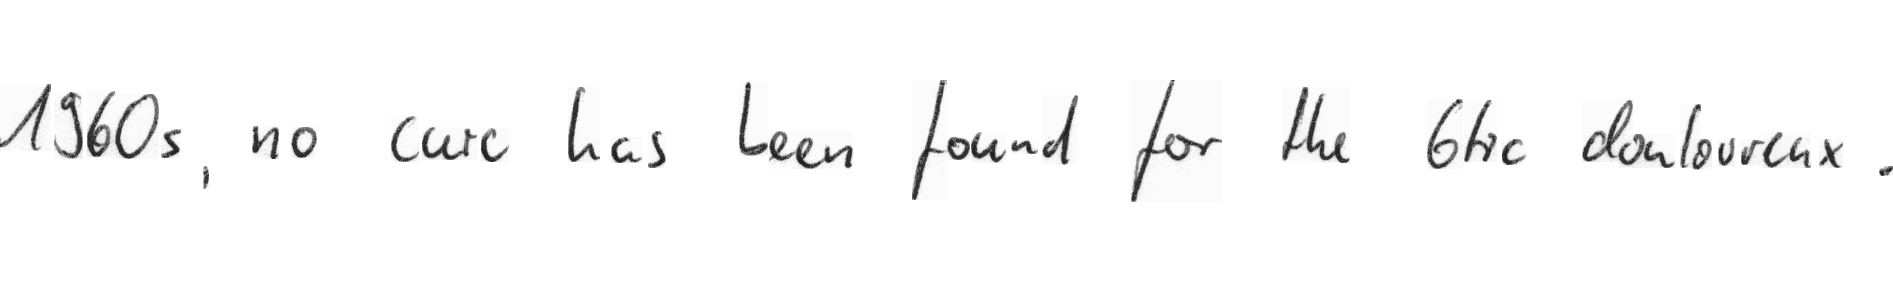 1960s, no cure has been found for the 6tic douloureux.